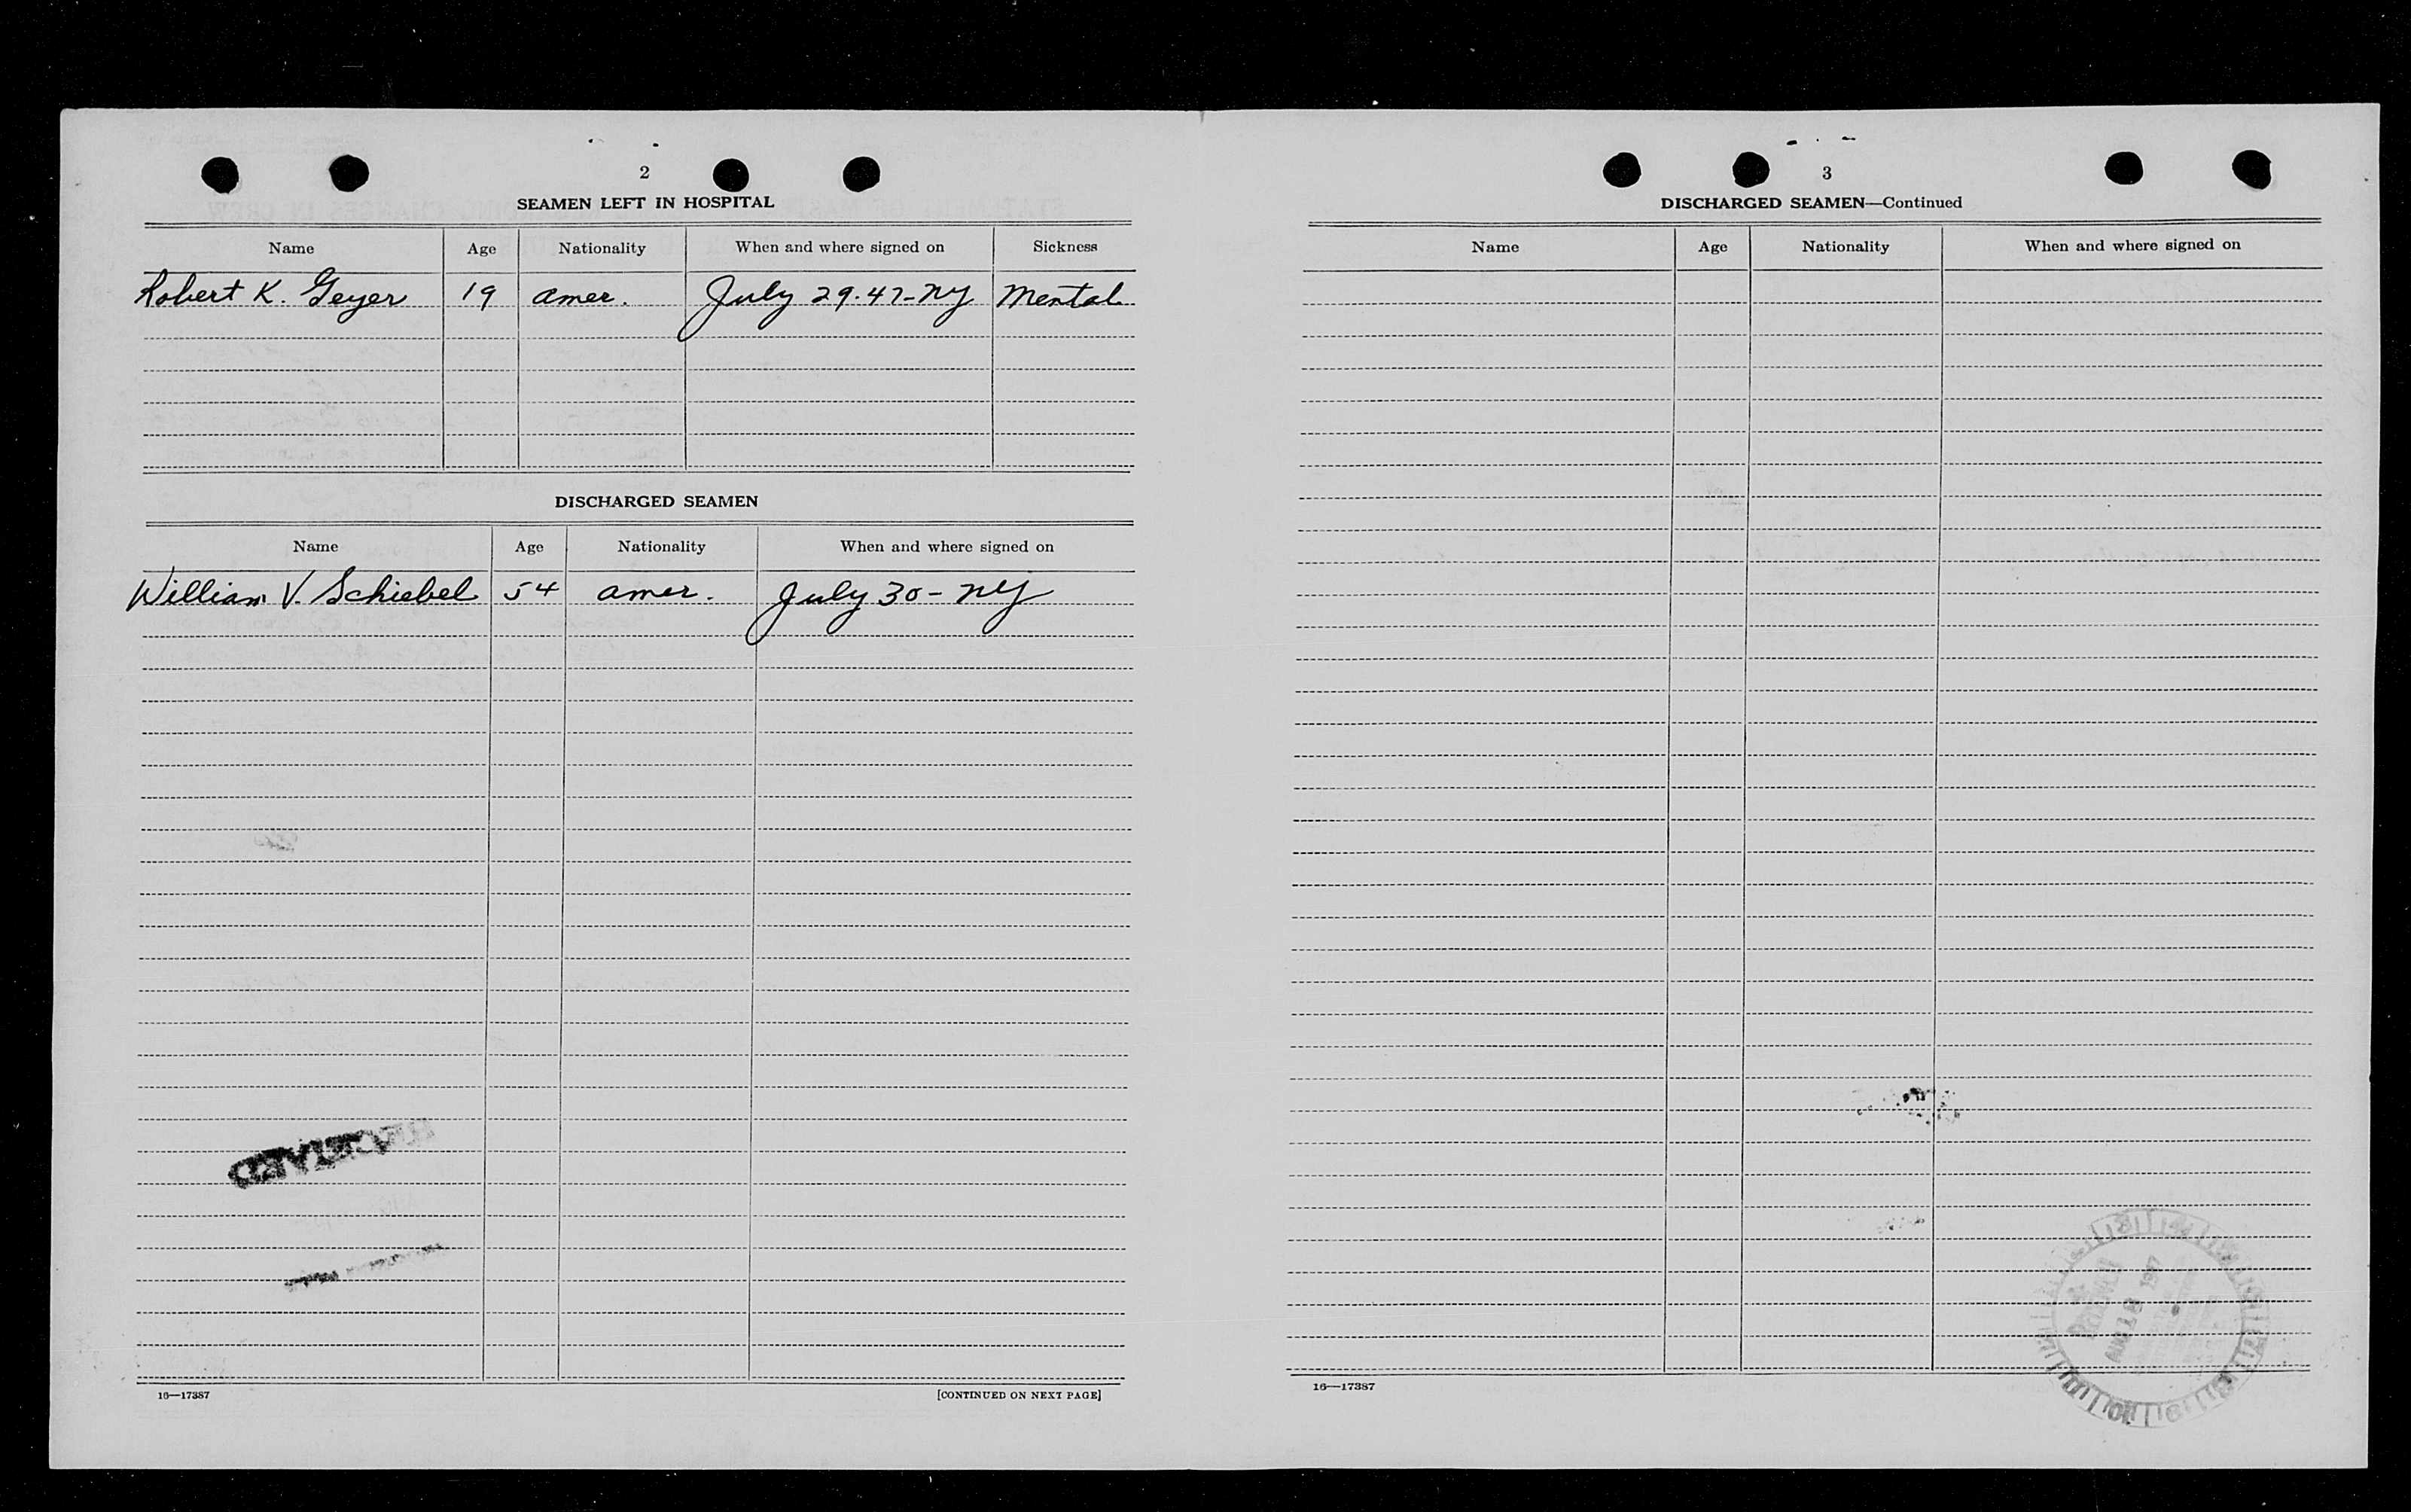 2
SEAMEN LEFT IN HOSPITAL
Name Age Nationality When and where signed on Sickness
Robert K. Geyer 19 amer. July 29.47-NY Mental
DISCHARGED SEAMEN
Name Age Nationality When and where signed on
William V. Schiebel 54 amer. July 30-NY
16—17387 [CONTINUED ON NEXT PAGE]
3
DISCHARGED SEAMEN—Continued
Name Age Nationality When and where signed on
AUG 18 1947
16—17387